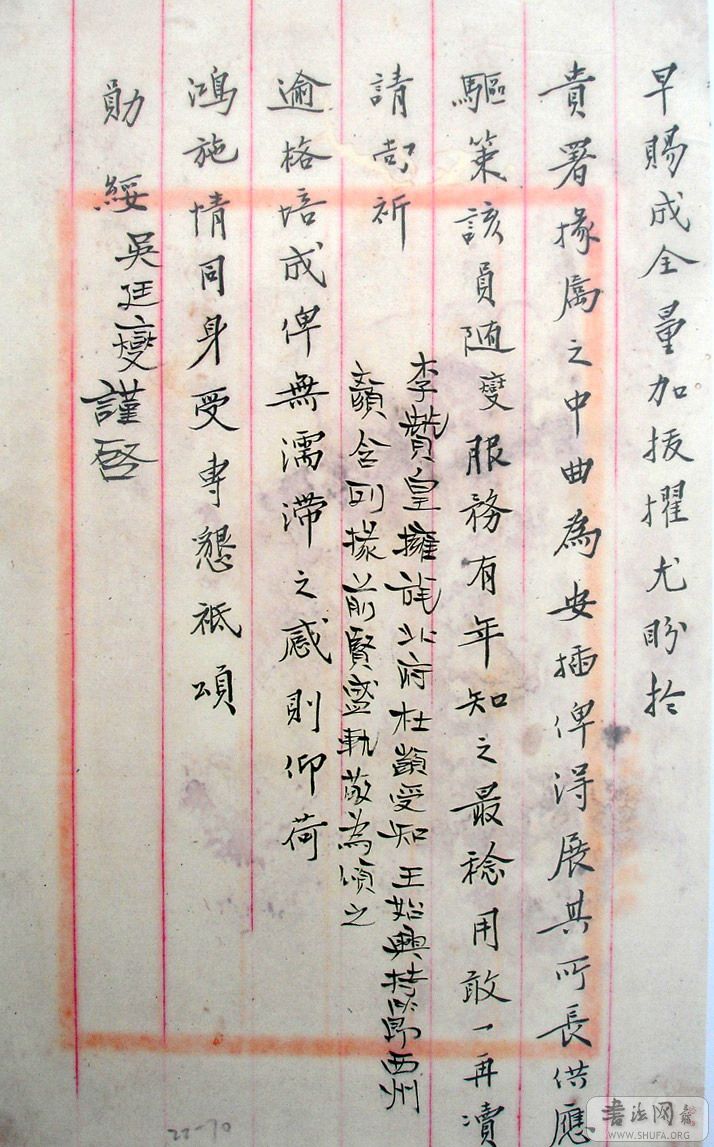 早賜成全量加拔擢尤盼於
貴署掾屬之中曲為安插俾得展其所長供應
驅策該員随燮服務有年知之最稔用敢一再瀆
請尚祈
李贊皇擁旄北府杜顗受知王始興持節西州
顏含列掾前賢盛軌敬為頌之
逾格培成俾無濡滯之感則仰荷
鴻施情同身受專懇祗頌
勛綏
吳廷燮謹啓
22-70
書法网
WWW.SHUFA.ORG